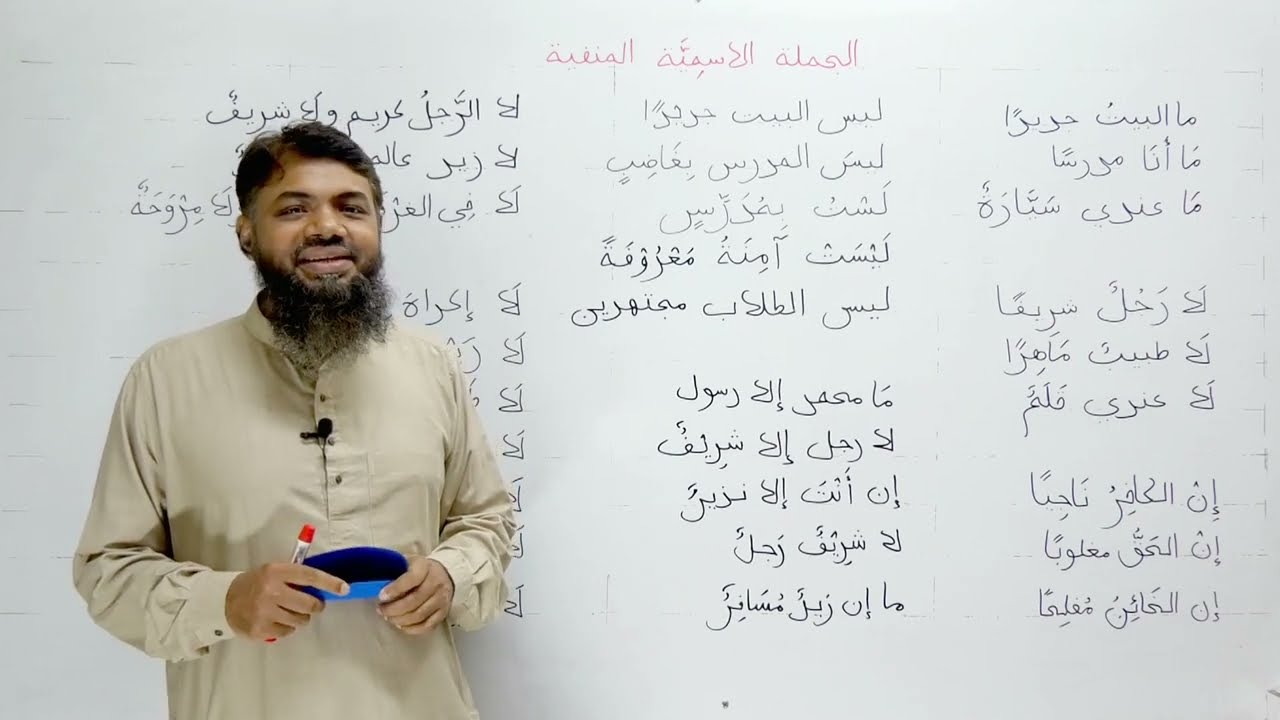 الجملة الاسمِيَّة المنفية
ما البيتُ جديدًا
مَا أنَا مدرسًا
مَا عندي سَيَّارَةٌ
لَا رَجُلٌ شرِيفًا
لَا طبيبٌ مَاهِرًا
لَا عندي قَلَمٌ
إِنْ الكافِرُ نَاجِيًا
إنْ الحَقُّ مغلوبًا
إن الخَائِنُ مُفلِحًا
ليس البيت جديدًا
ليسَ المدرس بِغَاضِبٍ
لَسْتُ بِمُدَرِّسٍ
لَيْسَتْ آمِنَةُ مَعْرُوْفَةً
ليس الطلاب مجتهدين
مَا محمد إلا رسول
لا رجل إلا شرِيْفٌ
إن أَنْتَ إلا نذيرٌ
لا شرِيْفٌ رَجلٌ
ما إن زَيدٌ مُسَافِرٌ
لا الرَّجلُ كريم ولَا شرِيفٌ
لا زيد عالم
لَا فِي الغرْ لَا مِرْوَحَةٌ
لَا إكراهَ
لَا
لَا
لَا
لَا
لَا
لَا